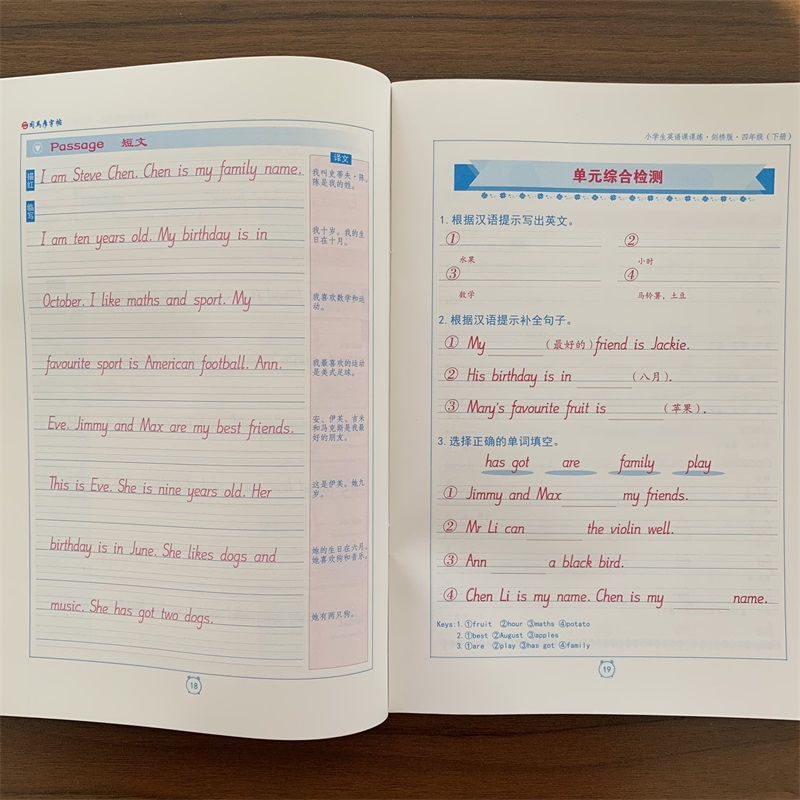 司马彦字帖
Passage 短文
译文
描红
I am Steve Chen. Chen is my family name.
我叫史蒂夫·陈。
陈是我的姓。
临写
I am ten years old. My birthday is in
我十岁。我的生
日在十月。
October. I like maths and sport. My
我喜欢数学和运
动。
favourite sport is American football. Ann.
我最喜欢的运动
是美式足球。
Eve. Jimmy and Max are my best friends.
安、伊芙、吉米
和马克斯是我最
好的朋友。
This is Eve. She is nine years old. Her
这是伊芙。她九
岁。
birthday is in June. She likes dogs and
她的生日在六月。
她喜欢狗和音乐。
music. She has got two dogs.
她有两只狗。
18
小学生英语课课练·剑桥版·四年级(下册)
单元综合检测
1.根据汉语提示写出英文。
① ②
水果 小时
③ ④
数学 马铃薯,土豆
2.根据汉语提示补全句子。
① My ________ (最好的) friend is Jackie.
② His birthday is in ________ (八月).
③ Mary's favourite fruit is ________ (苹果).
3.选择正确的单词填空。
has got are family play
① Jimmy and Max ________ my friends.
② Mr Li can ________ the violin well.
③ Ann ________ a black bird.
④ Chen Li is my name. Chen is my ________ name.
Keys:1.①fruit ②hour ③maths ④potato
2.①best ②August ③apples
3.①are ②play ③has got ④family
19